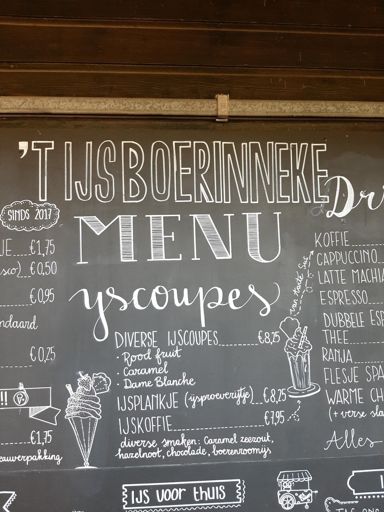 'T IJSBOERINNEKE
SINDS 2017
MENU
yscoupes
€1,75
€0,50
€0,95
ndaard
€0,25
!!
€1,75
auwerpakking
DIVERSE IJSCOUPES €8,75
· Rood fruit
· Caramel
· Dame Blanche
IJSPLANKJE (ijsproeverijtje) €8,25
IJSKOFFIE €7,95
diverse smaken: Caramel zeezout,
hazelnoot, chocolade, boerenroomijs
IJs voor thuis
KOFFIE
CAPPUCCINO
LATTE MACHIA
ESPRESSO
DUBBELE ESP
THEE
RANJA
FLESJE SPA
WARME CH
(+ verse sla
Alles